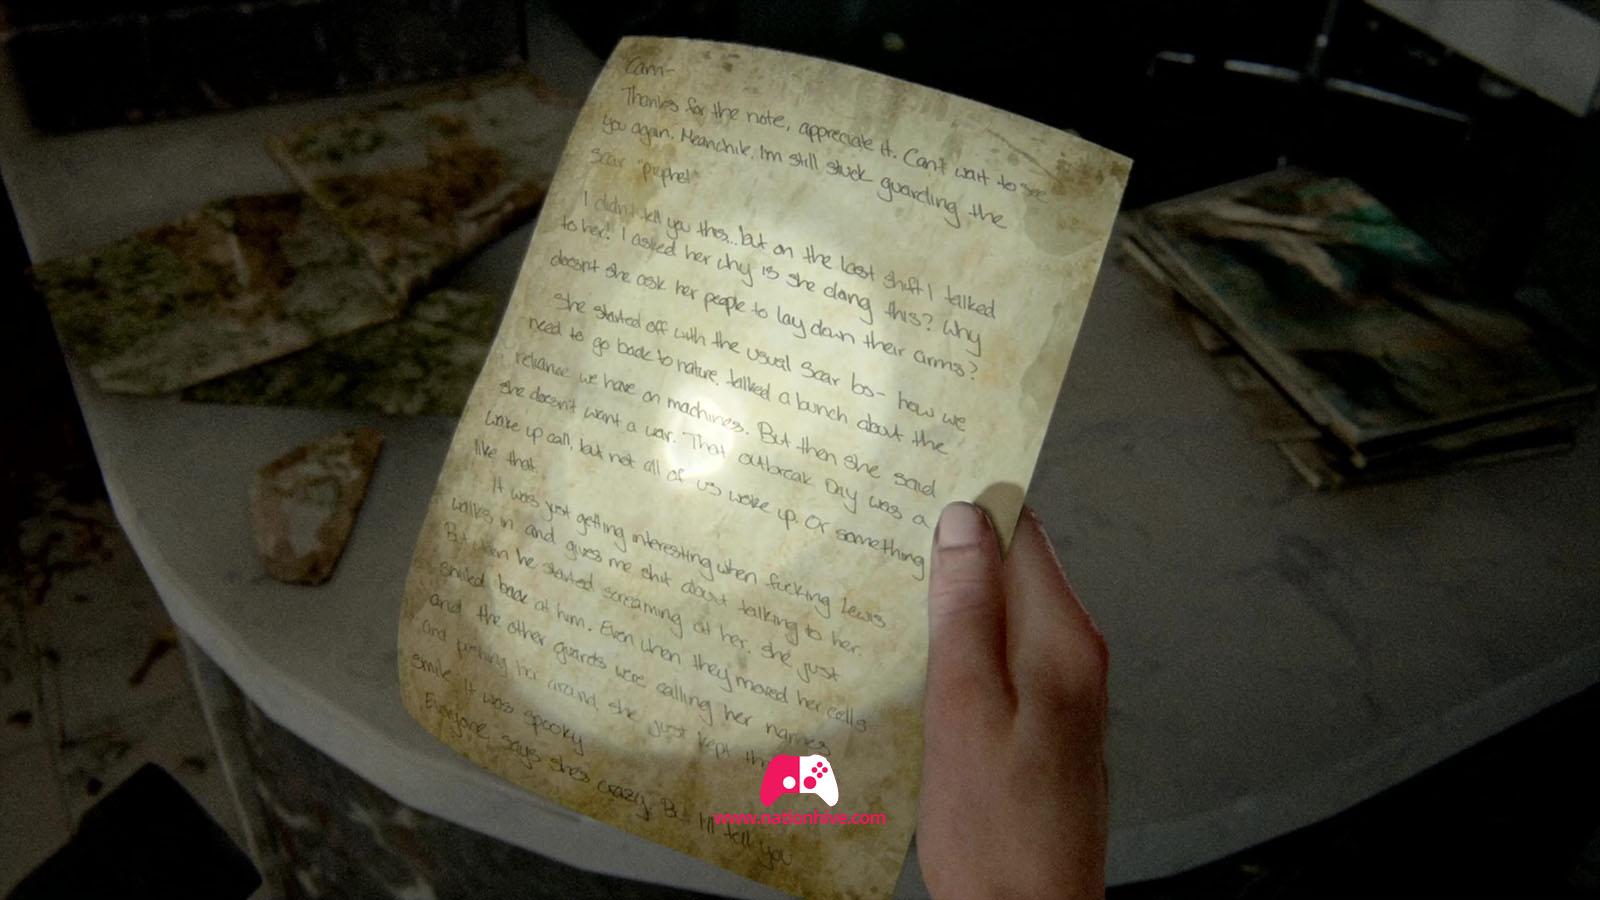 Cam-
Thanks for the note, appreciate it. Can't wait to see
you again. Meanwhile, I'm still stuck guarding the
Scar "prophet"
I didn't tell you this...but on the last shift I talked
to her! I asked her why is she doing this? Why
doesn't she ask her people to lay down their arms?
She started off with the usual Scar bs- how we
need to go back to nature, talked a bunch about the
reliance we have on machines. But then she said
she doesn't want a war. That outbreak Day was a
wake up call, but not all of us woke up. Or something
like that.
It was just getting interesting when fucking Lewis
walks in and gives me shit about talking to her.
But when he started screaming at her, she just
smiled back at him. Even when they moved her cells
and the other guards were calling her names
and pushing her around, she just kept
smile. It was spooky
Everyone says she's crazy. But I'll tell you
www.nationhive.com